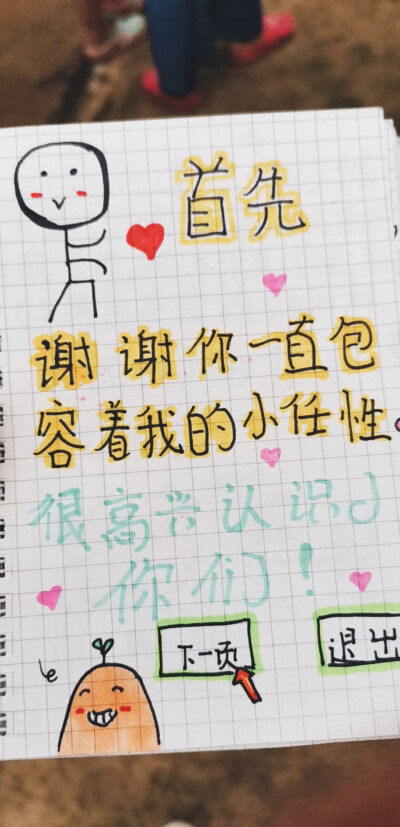 首先
谢谢你一直包
容着我的小任性
很高兴认识
你们！
下一页
退出